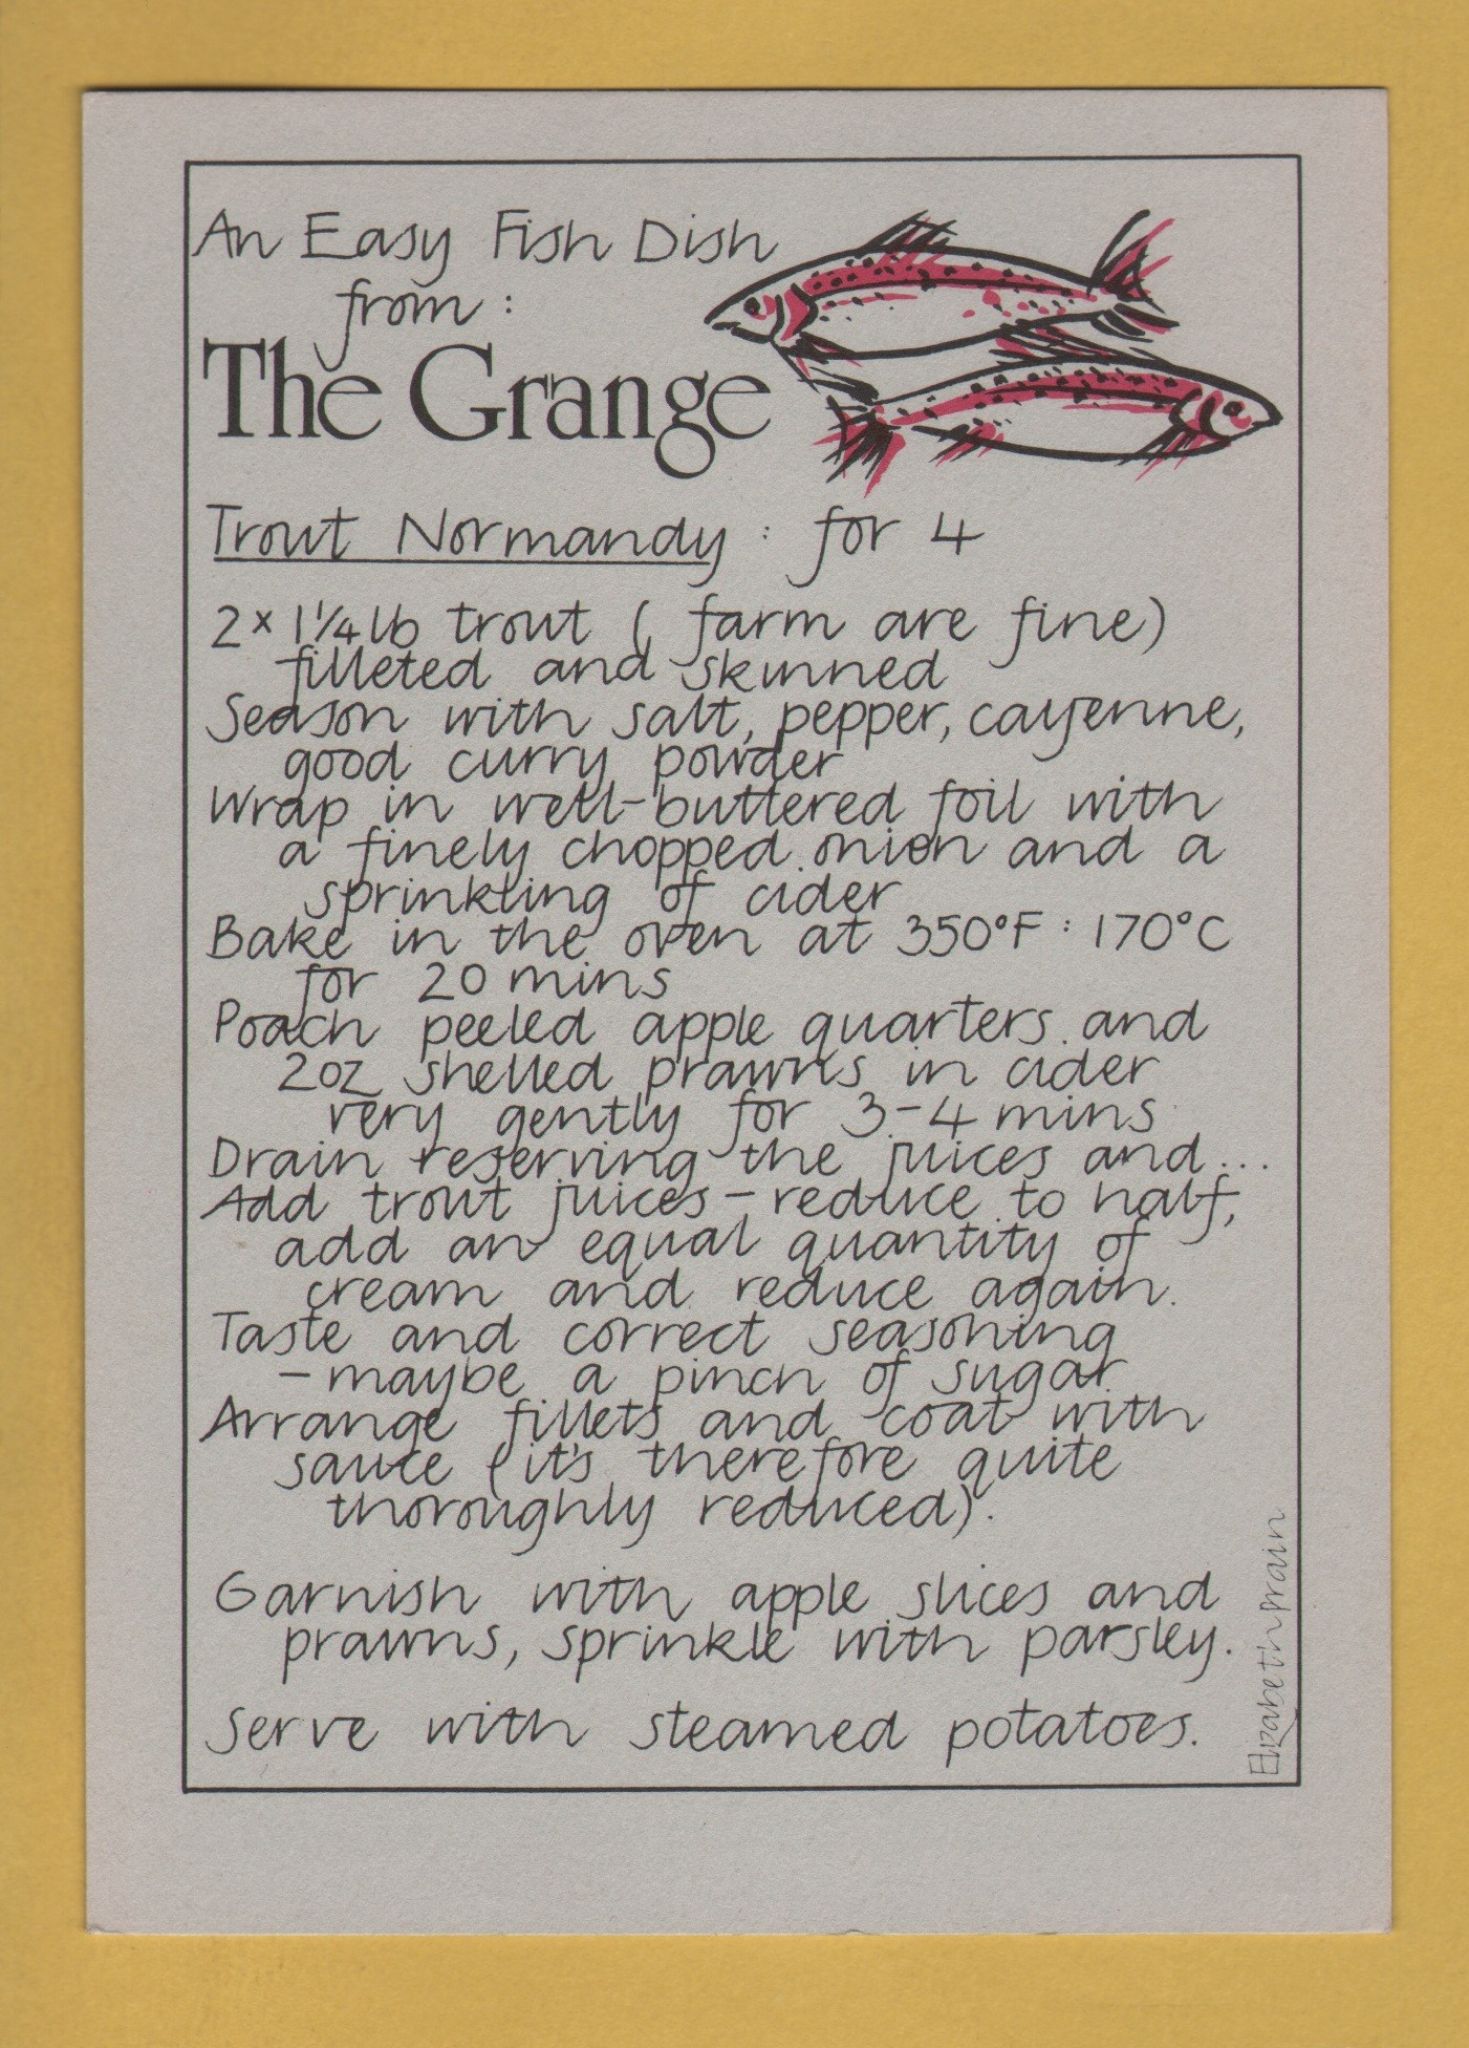 An Easy Fish Dish
from :
The Grange
Trout Normandy : for 4
2 x 1¼ lb trout ( farm are fine)
filleted and skinned
Season with salt, pepper, cayenne,
good curry powder
Wrap in well-buttered foil with
a finely chopped onion and a
sprinkling of cider
Bake in the oven at 350°F : 170°C
for 20 mins
Poach peeled apple quarters and
2oz shelled prawns in cider
very gently for 3-4 mins
Drain reserving the juices and...
Add trout juices - reduce to half,
add an equal quantity of
cream and reduce again.
Taste and correct seasoning
- maybe a pinch of sugar
Arrange fillets and coat with
sauce (it's therefore quite
thoroughly reduced).
Garnish with apple slices and
prawns, sprinkle with parsley.
Serve with steamed potatoes.
Elizabeth Prain